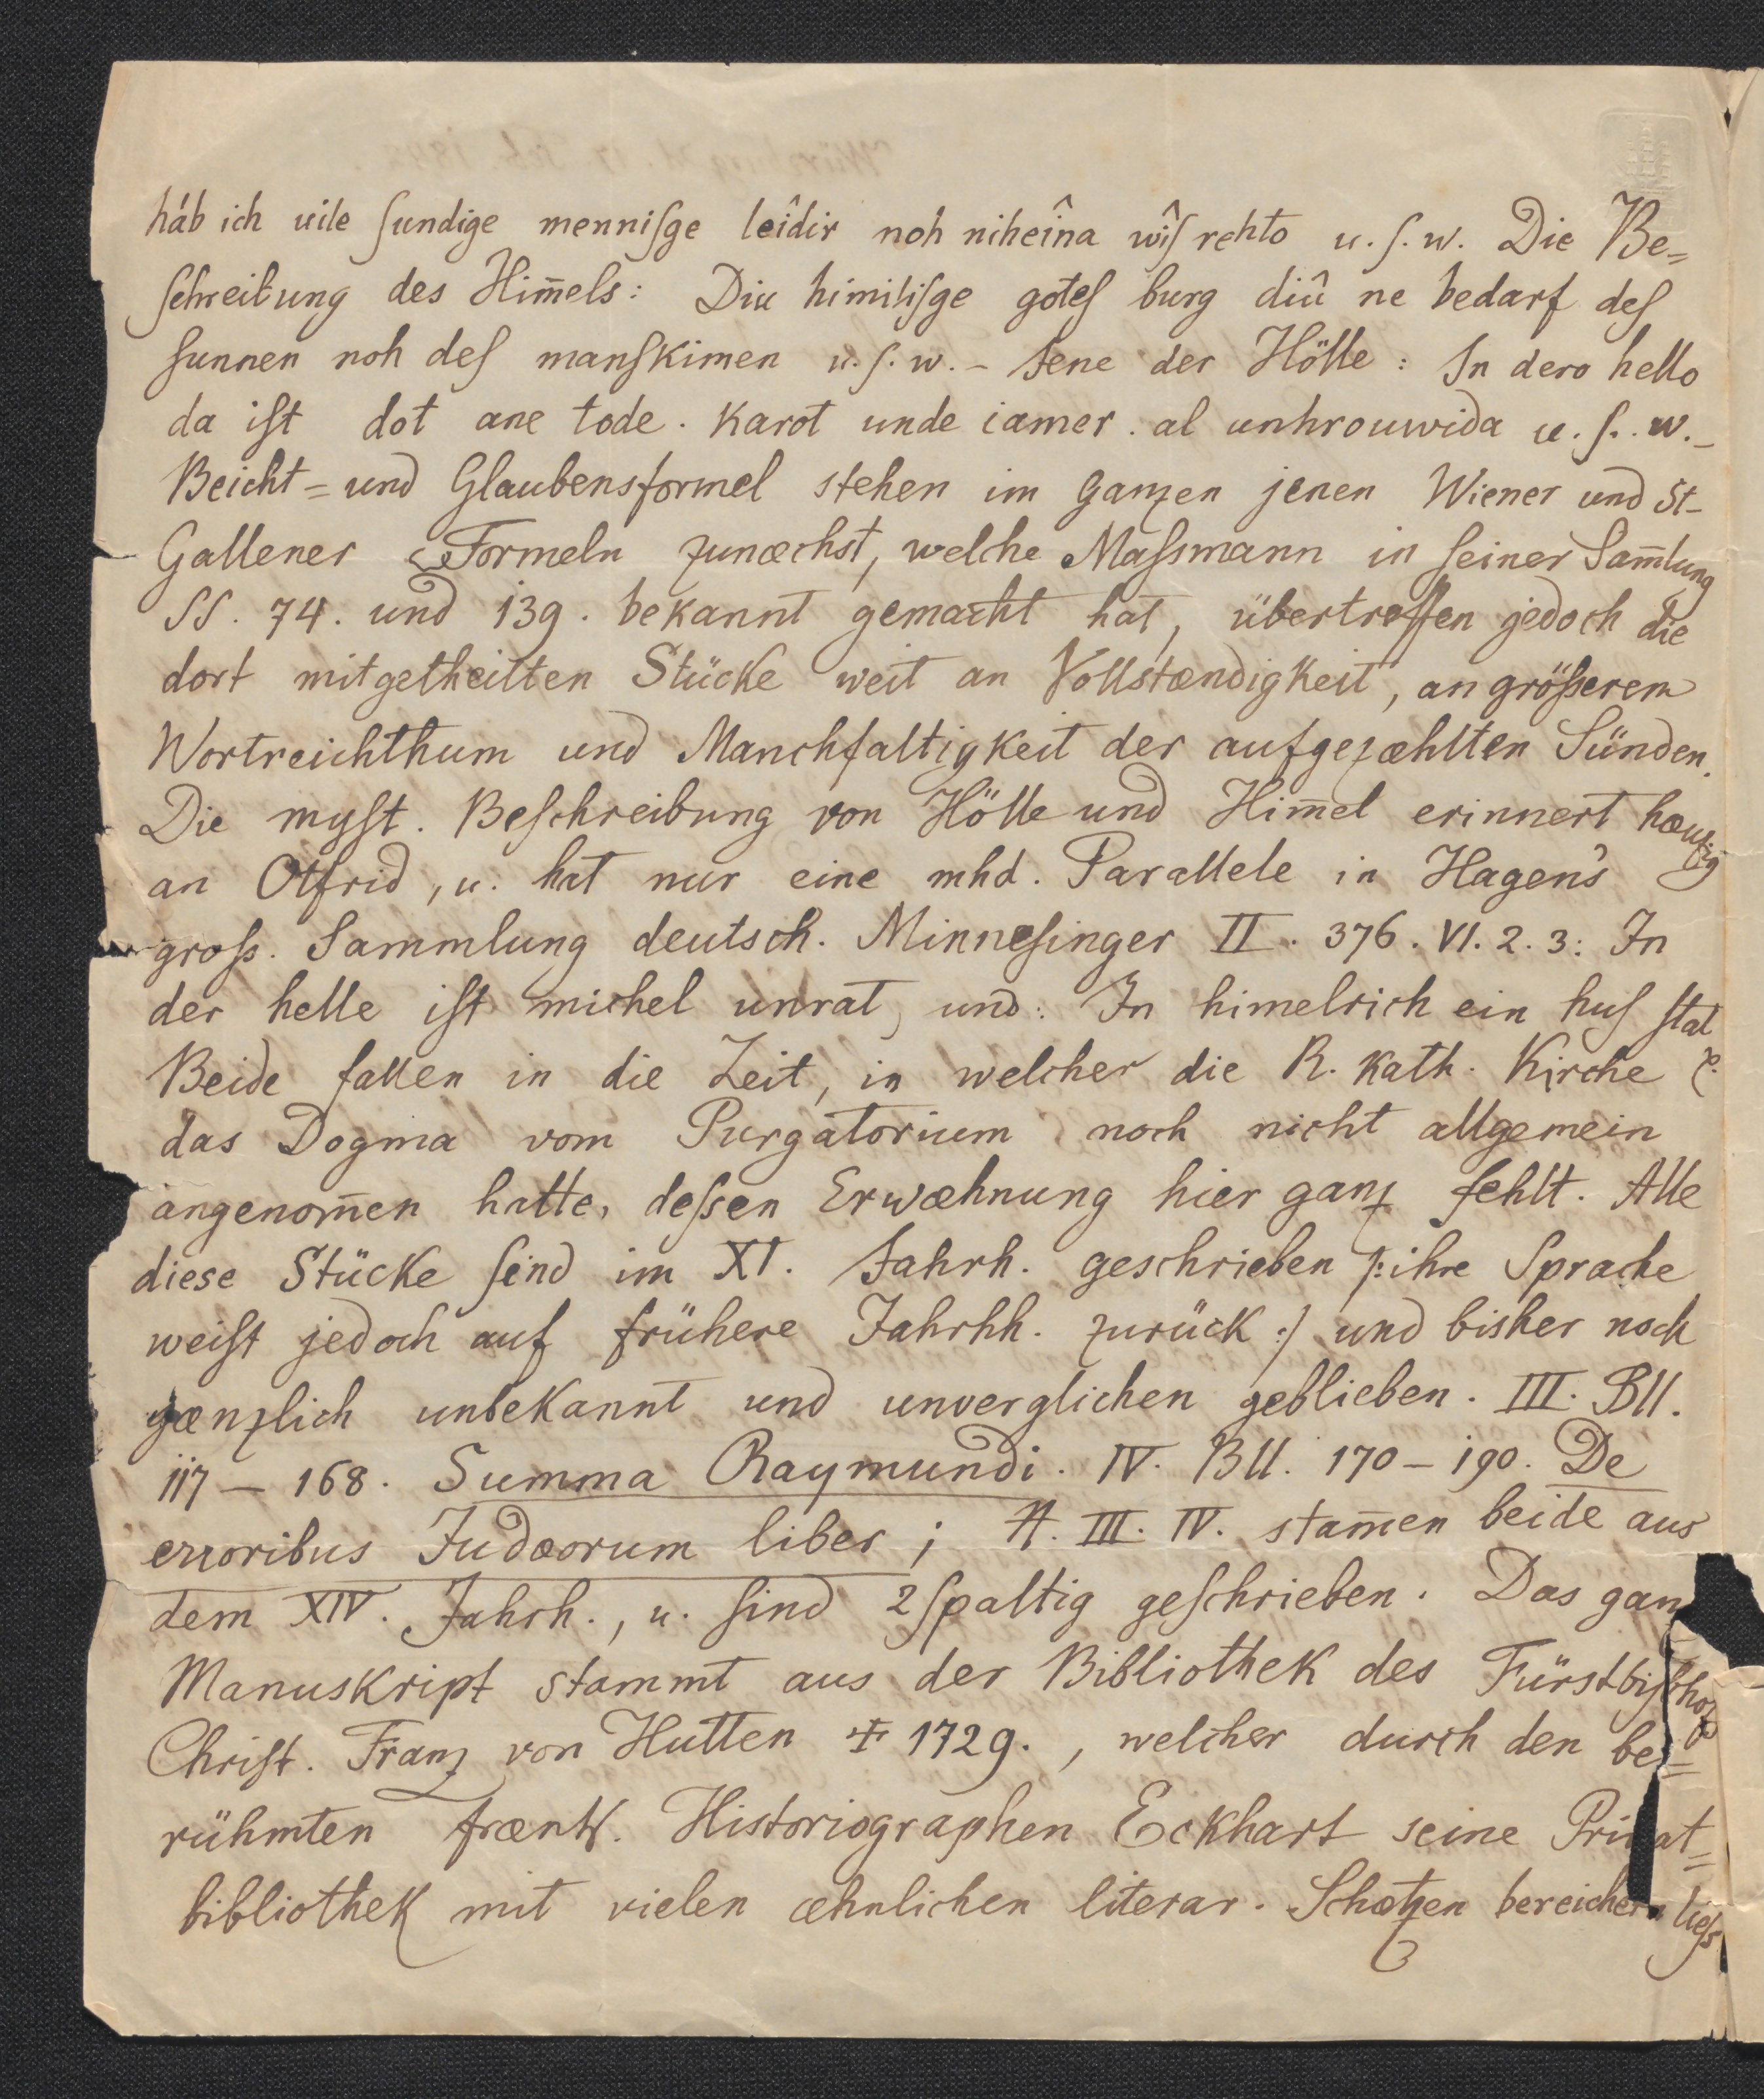 háb ich uile ſundige menniſge leîdir noh niheîna wîſ rehto u. ſ. w. Die Be=
ſchreibung des Him̅els: Diu himiliſge goteſ burg diû ne bedarf deſ
ſunnen noh deſ manſkimen u. ſ. w. - Jene der Hölle: In dero hello
da iſt dot ane tode. Karot unde iamer. al unhrouwida u. ſ. w. -
Beicht= und Glaubensformel stehen im Ganzen jenen Wiener und St-
Gallener Formeln zunæchst, welche Maſsmann in ſeiner Sam̅lung
SS. 74. und 139. bekannt gemacht hat, übertreffen jedoch die
dort mitgetheilten Stücke weit an Vollstændigkeit, an größerem
Wortreichthum und Manchfaltigkeit der aufgezæhlten Sünden.
Die myſt. Beſchreibung von Hölle und Him̅el erinnert hæufig
an Otfrid, u. hat nur eine mhd. Parallele in Hagen's
groſs. Sammlung deutsch. Minneſinger II. 376. VI. 2. 3: In
der helle iſt michel unrat, und: In himelrich ein huſ ſtat
Beide fallen in die Zeit, in welcher die R. Kath. Kirche
das Dogma vom Purgatorium noch nicht allgemein
angenom̅en hatte, deſsen Erwæhnung hier ganz fehlt. Alle
diese Stücke ſind im XI. Jahrh. geschrieben /: ihre Sprache
weiſt jedoch auf frühere Jahrhh. zurück :/ und bisher noch
gænzlich unbekannt und unverglichen geblieben. III. Bll.
117 – 168. Summa Raymundi. IV. Bll. 170 – 190. De
erroribus Judæorum liber; N. III. IV. stam̅en beide aus
dem XIV. Jahrh., u. ſind 2ſpaltig geſchrieben. Das gan
Manuskript stammt aus der Bibliothek des Fürstbiſchofs
Chriſt. Franz von Hutten ‡ 1729., welcher durch den be=
rühmten frænk. Historiographen Eckhart seine Privat=
bibliothek mit vielen æhnlichen literar. Schætzen bereichern lieſs